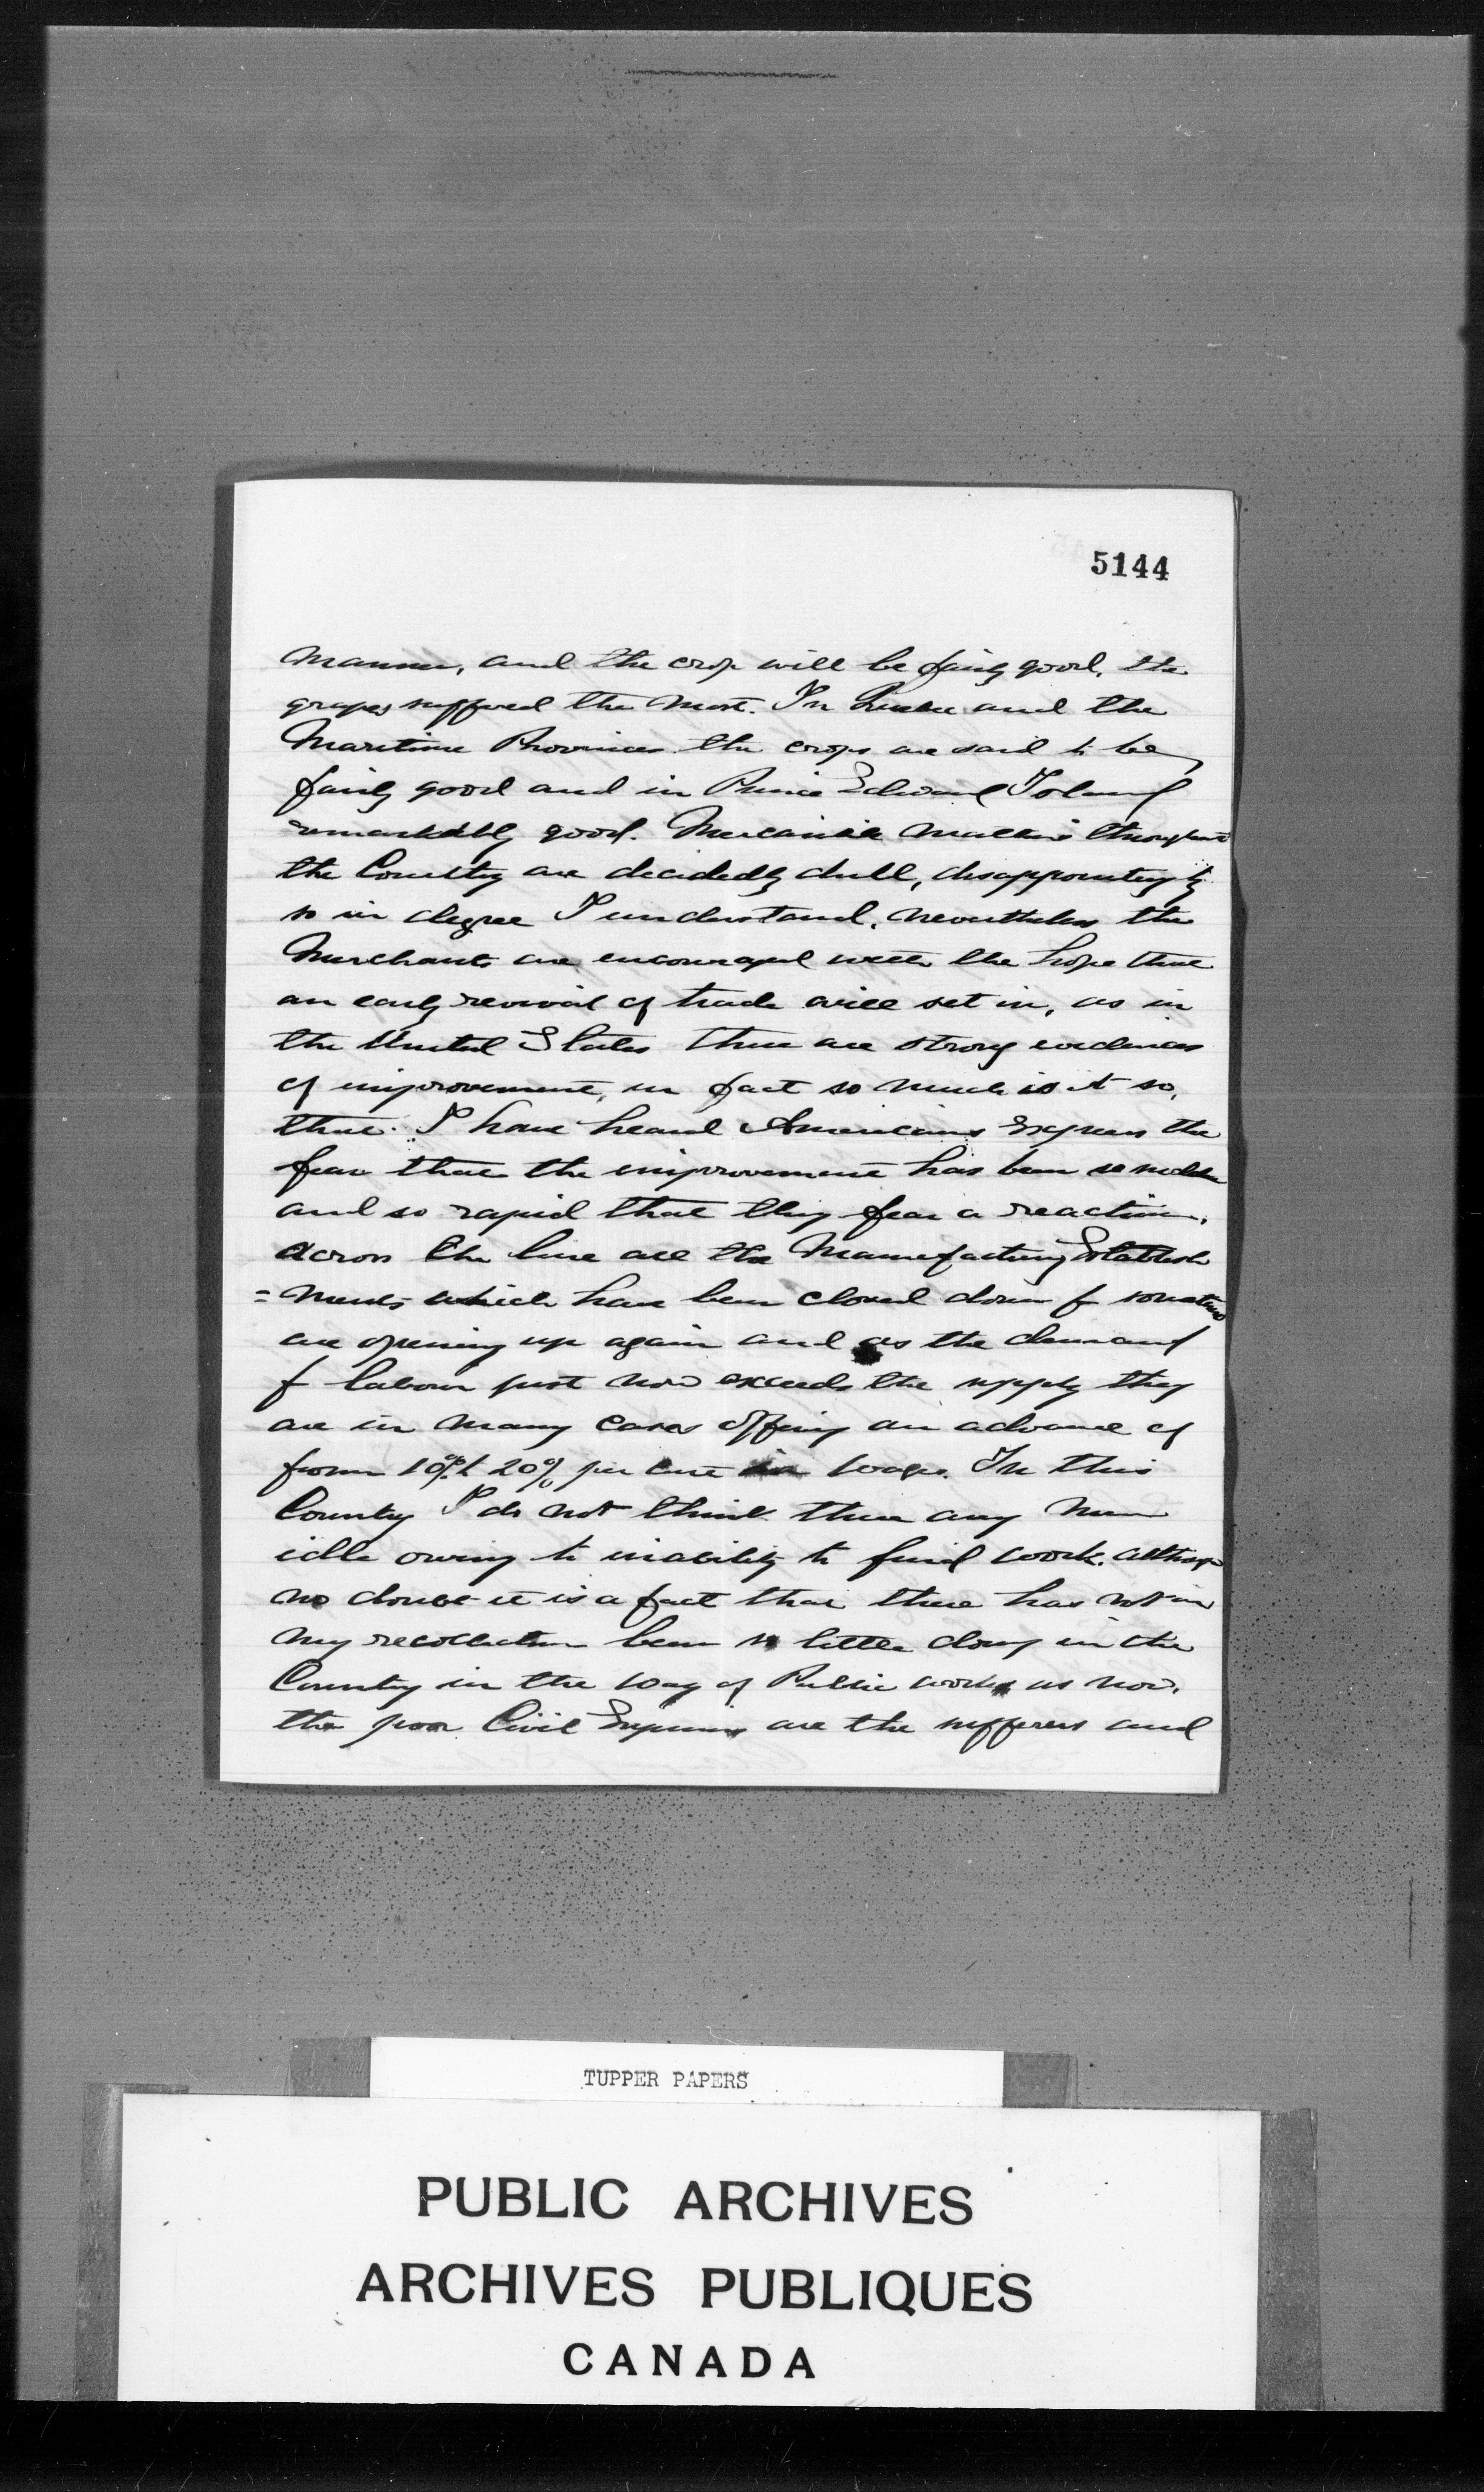 5144
manner, and the crop will be fairly good, the
grapes suffered the most. In Quebec and the
Maritime Provinces the crops are said to be
fairly good and in Prince Edward Island
remarkably good. Mercantile matters throughout
the Country are decidedly dull, disappointingly
so in degree I understand. Nevertheless the
Merchants are encouraged with the hope that
an early revival of trade will set in, as in
the United States there are strong evidences
of improvement, in fact so much is it so,
that I have heard Americans express the
fear that the improvement has been so sudden
and so rapid that they fear a reaction.
Across the line all the Manufacturing Establish
=ments which have been closed down for some time
are opening up again and as the demand
for labour just now exceeds the supply they
are in many cases offering an advance of
from 10% to 20% per cent in wages. In this
Country I do not think there any men
idle owing to inability to find work. Although
no doubt it is a fact that there has not in
my recollection been so little doing in the
Country in the way of Public works as now.
the poor Civil Engineers are the sufferers and
TUPPER PAPERS
PUBLIC ARCHIVES
ARCHIVES PUBLIQUES
CANADA